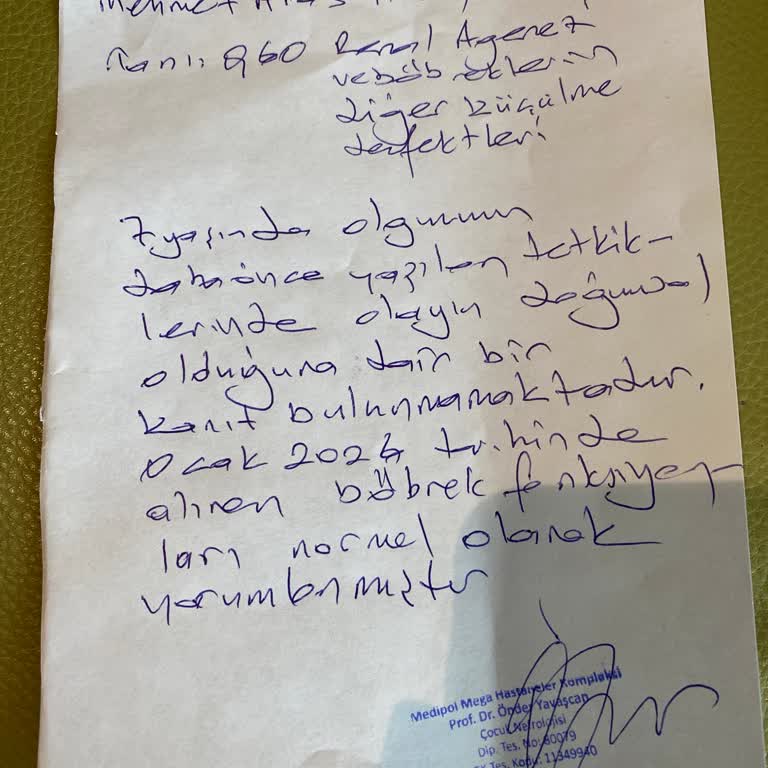 Mehmet
Tanı: Q60 Renal Agenez
ve böbreklerin
diğer küçülme
defektleri
7 yaşında olgunun
daha önce yazılan tetkik-
lerinde olayın doğumsal
olduğuna dair bir
kanıt bulunmamaktadır.
Ocak 2024 tarihinde
alınan böbrek fonksiyon-
ları normal olarak
yorumlanmıştır
Medipol Mega Hastaneler Kompleksi
Prof. Dr. Önder Yavaşcan
Çocuk Nefrolojisi
Dip. Tes. No: 80079
Tes. Kodu: 11349940